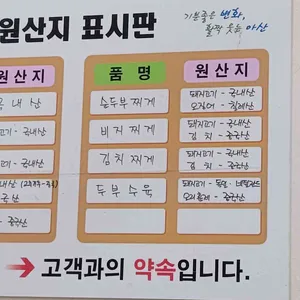 원산지 표시판
기분좋은 변화,
활짝 웃는 아산
원산지
품명
원산지
국내산
순두부찌개
돼지고기 - 국내산
오징어 - 칠레산
고기 - 국내산
중국산
비지찌개
돼지고기 - 국내산
김치 - 중국산
고기 - 국내산
중국산
김치찌개
돼지고기 - 국내산
김치 - 중국산
국내산
중국산
두부수육
돼지고기 - 독일
중국산
→ 고객과의 약속입니다.